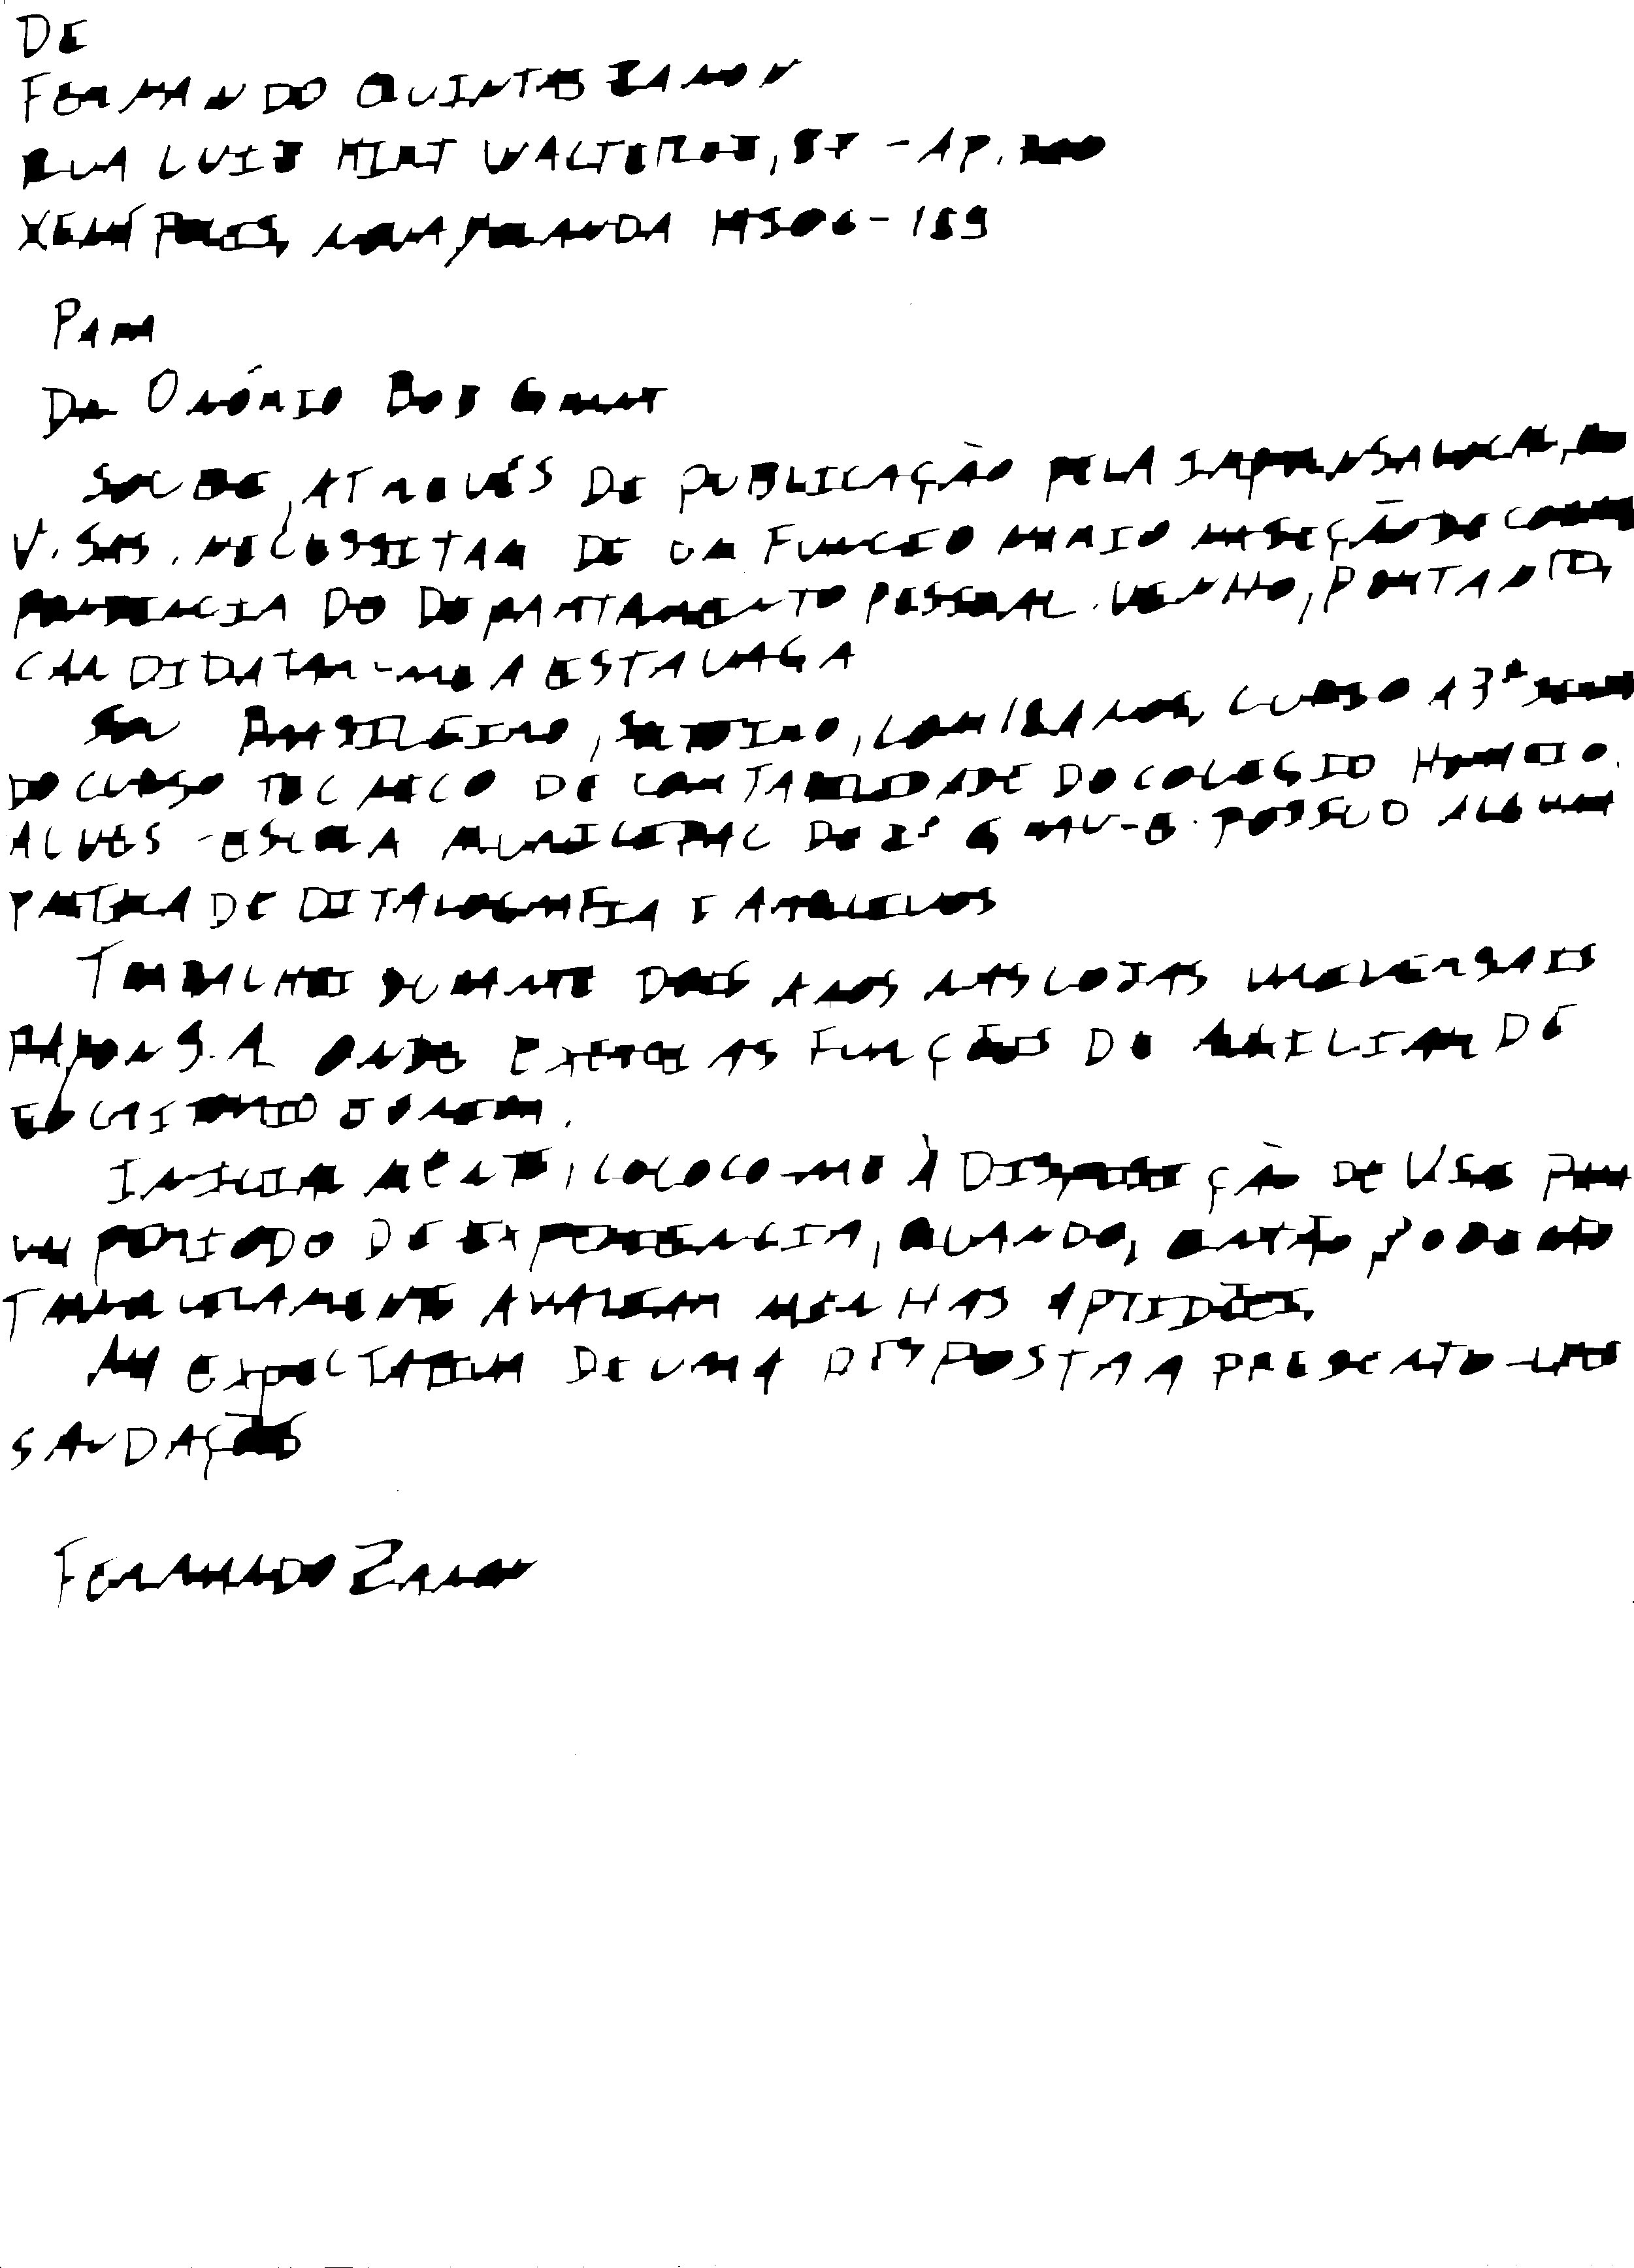 DE
FERNANDO QUINTAS ZANON
RUA LUIS HIRT WALTEROS, 87 - AP. 200
HS06-189
PARA
DR ONÓRIO BOS GRANT
SOUBE, ATRAVÉS DE PUBLICAÇÃO PELA IMPRENSA LOCAL,
V. SAS. NECESSITAM DE UM FUNCIONARIO NA SEÇÃO DE
DO DEPARTAMENTO PESSOAL. VENHO, PORTANTO,
CANDIDATAR-ME A ESTA VAGA
SOU BRASILEIRO, SOLTEIRO, COM 18 ANOS, CURSO A 3ª SERIE
DO CURSO TECNICO DE CONTABILIDADE DO COLEGIO HOMERO.
ALVES - ESCOLA MUNICIPAL DE 2º GRAU-E. POSSUO ALGUMA
PRATICA DE DATILOGRAFIA E ARQUIVOS
TRABALHEI DURANTE DOIS ANOS NAS LOJAS UNIVERSAIS
S.A ONDE EXERCI AS FUNÇÕES DE AUXILIAR DE
ESCRITORIO JUNIOR.
INICIALMENTE, COLOCO-ME À DISPOSIÇÃO DE V.SAS PARA
UM PERIODO DE EXPERIENCIA, QUANDO, ENTÃO, PODERÃO
AVALIAR MINHAS APTIDÕES.
NA EXPECTATIVA DE UMA RESPOSTA APRESENTO-LHES
SAUDAÇÕES
FERNANDO ZANON